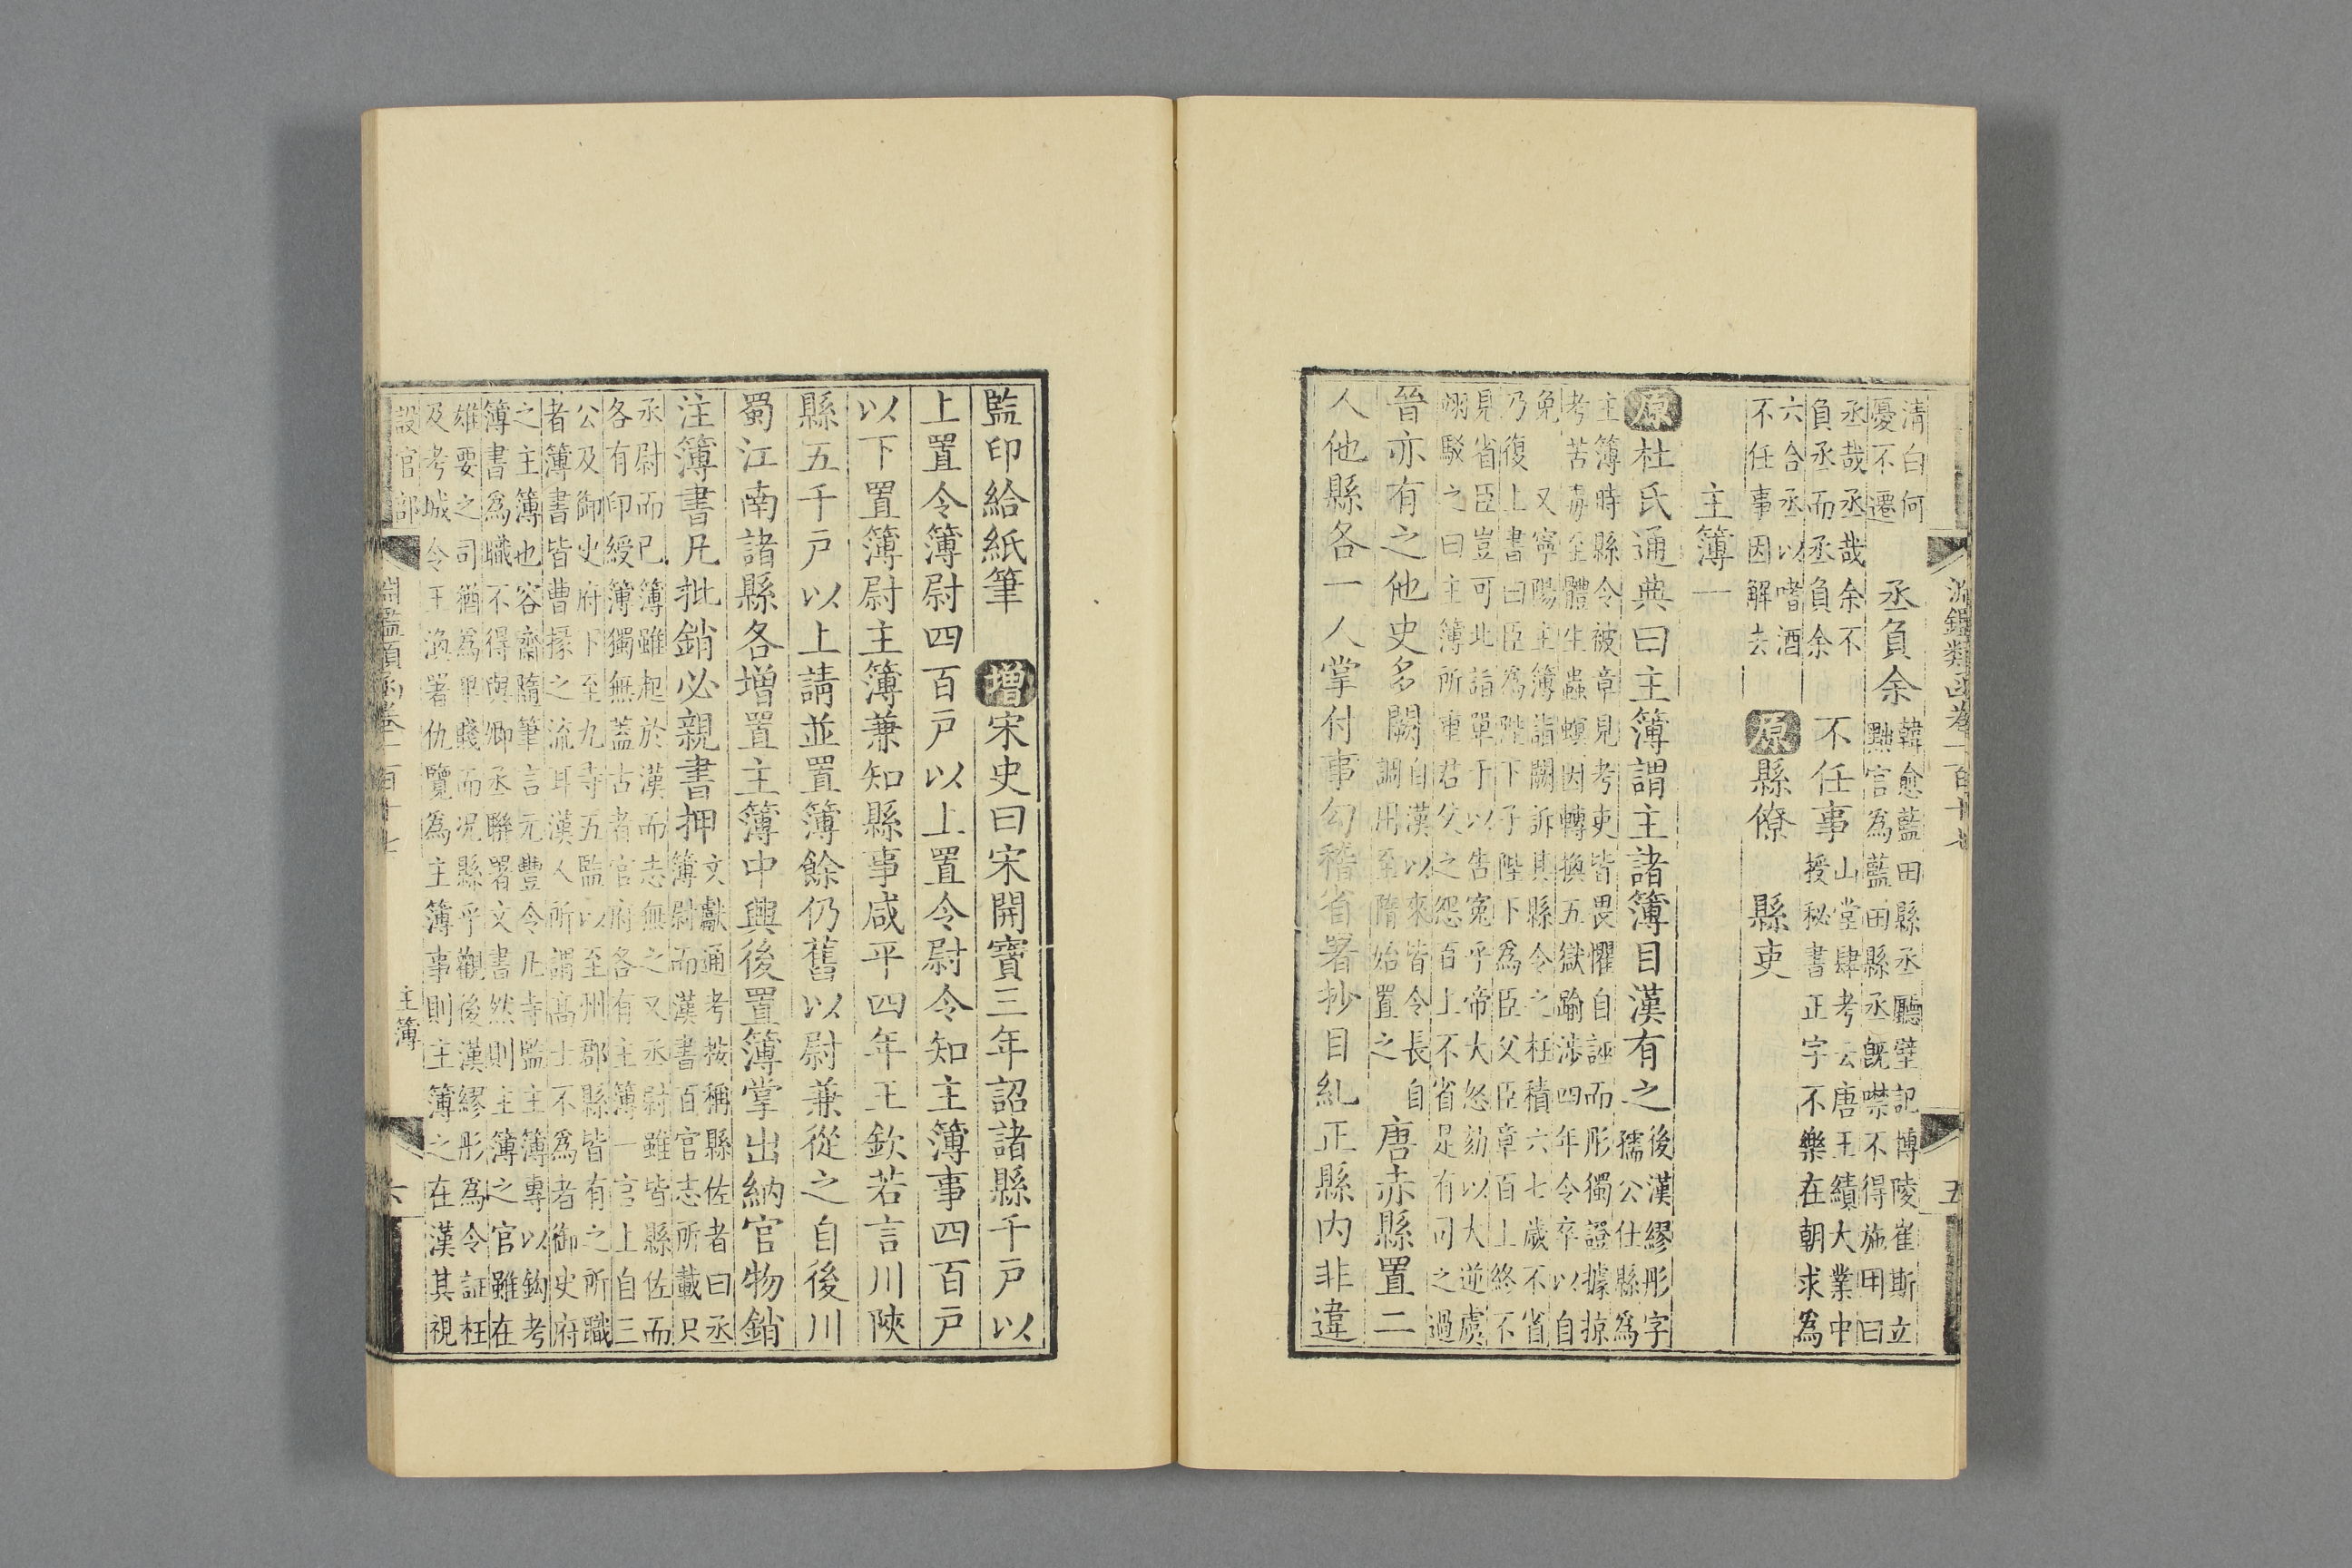 淵鑑類函卷一百十七
五
清白何
憂不遷
丞負余
韓愈藍田縣丞廳壁記博陵崔斯立
黜言為藍田縣丞既噤不得施用曰
丞哉丞哉余不
負丞而丞負余
不任事
山堂肆考云唐王績大業中
授秘書正字不樂在朝求為
六合丞以嗜酒
不任事因解去
原縣僚
縣吏
主簿一
原杜氏通典曰主簿謂主諸簿目漢有之
後漢繆彤字
孺公仕縣為
主簿時縣令被章見考吏皆畏懼自誣而彤獨證據掠
考苦毒至體生蟲螟因轉換五獄踰涉四年令卒以自
免 又寧陽主簿詣闕訴其縣令之枉積六七歲不省
乃復上書曰臣為陛下子陛下為臣父臣章百上終不
見省臣豈可北詣單于以告寃乎帝大怒劾以大逆虞
翊駁之曰主簿所重君父之怨百上不省是有司之過
晉亦有之他史多闕
自漢以來皆令長自
調用至隋始置之
唐赤縣置二
人他縣各一人掌付事勾稽省署抄目糺正縣內非違
監印給紙筆
增宋史曰宋開寶三年詔諸縣千戸以
上置令簿尉四百戸以上置令尉令知主簿事四百戸
以下置簿尉主簿兼知縣事咸平四年王欽若言川陝
縣五千戸以上請並置簿餘仍舊以尉兼從之自後川
蜀江南諸縣各增置主簿中興後置簿掌出納官物銷
注簿書凡批銷必親書押
文獻通考按稱縣佐者曰丞
簿尉而漢書百官志所載只
丞尉而已簿雖起於漢而志無之又丞尉雖皆縣佐而
各有印綬簿獨無蓋古者官府各有主簿一官上自三
公及御史府下至九寺五監以至州郡縣皆有之所職
者簿書皆曹掾之流耳漢人所謂高士不為者御史府
之主簿也容齋隨筆言元豐令凡寺監主簿專以鈎考
簿書為職不得與卿丞聯署文書然則主簿之官雖在
雄要之司猶為卑賤而况縣乎觀後漢繆彤為令証枉
及考城令王渙署仇覽為主簿事則主簿之在漢其視
設官部
淵鑑類函卷一百十七
主簿
六